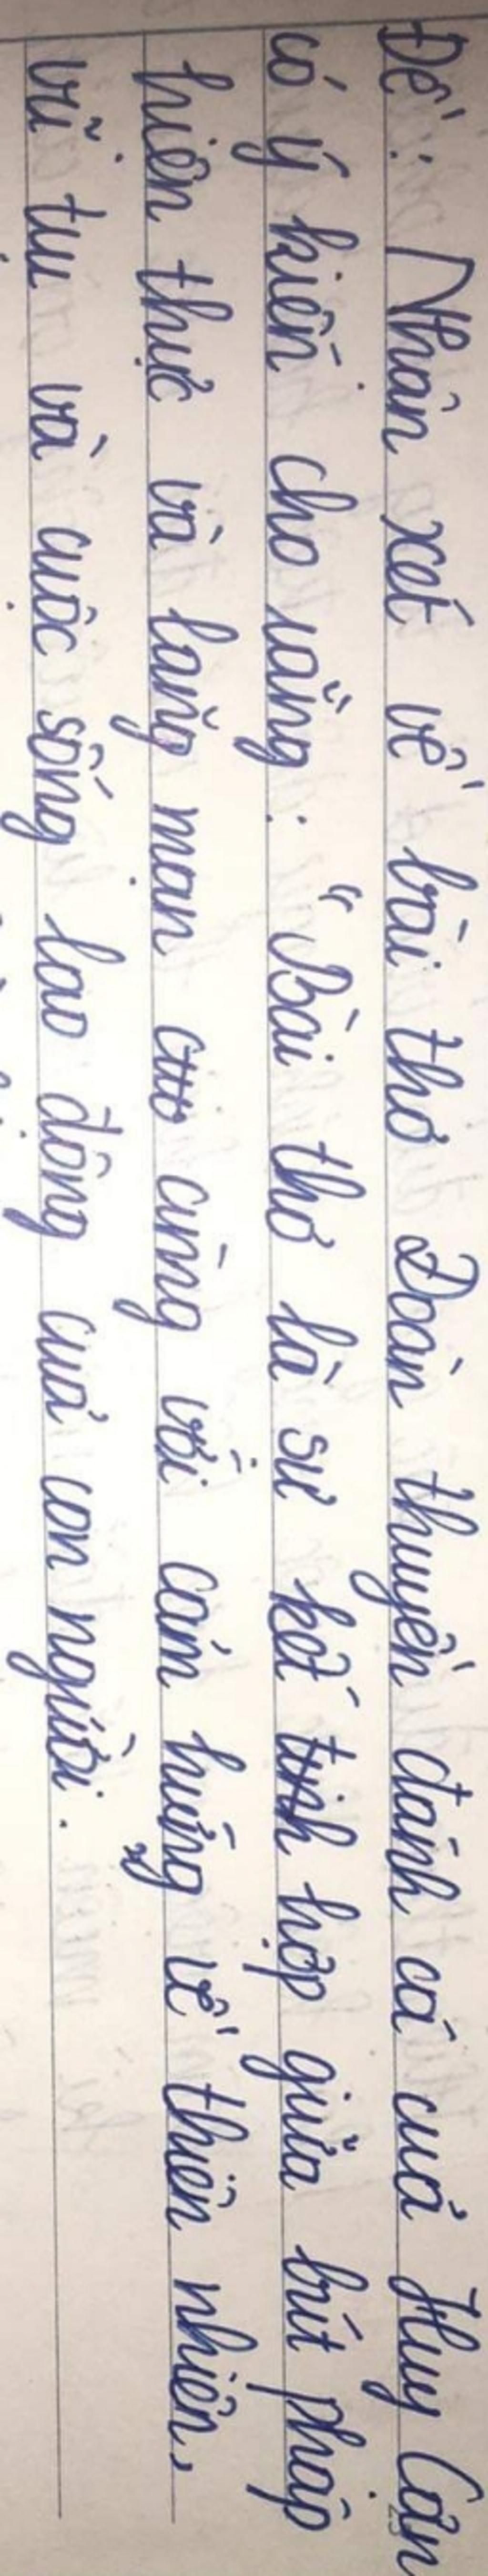 Đề: Nhận xét về bài thơ Đoàn thuyền đánh cá của Huy Cận
có ý kiến cho rằng: "Bài thơ là sự kết tinh hợp giữa bút pháp
hiện thực và lãng mạn cùng với cảm hứng về thiên nhiên,
vũ trụ và cuộc sống lao động của con người.